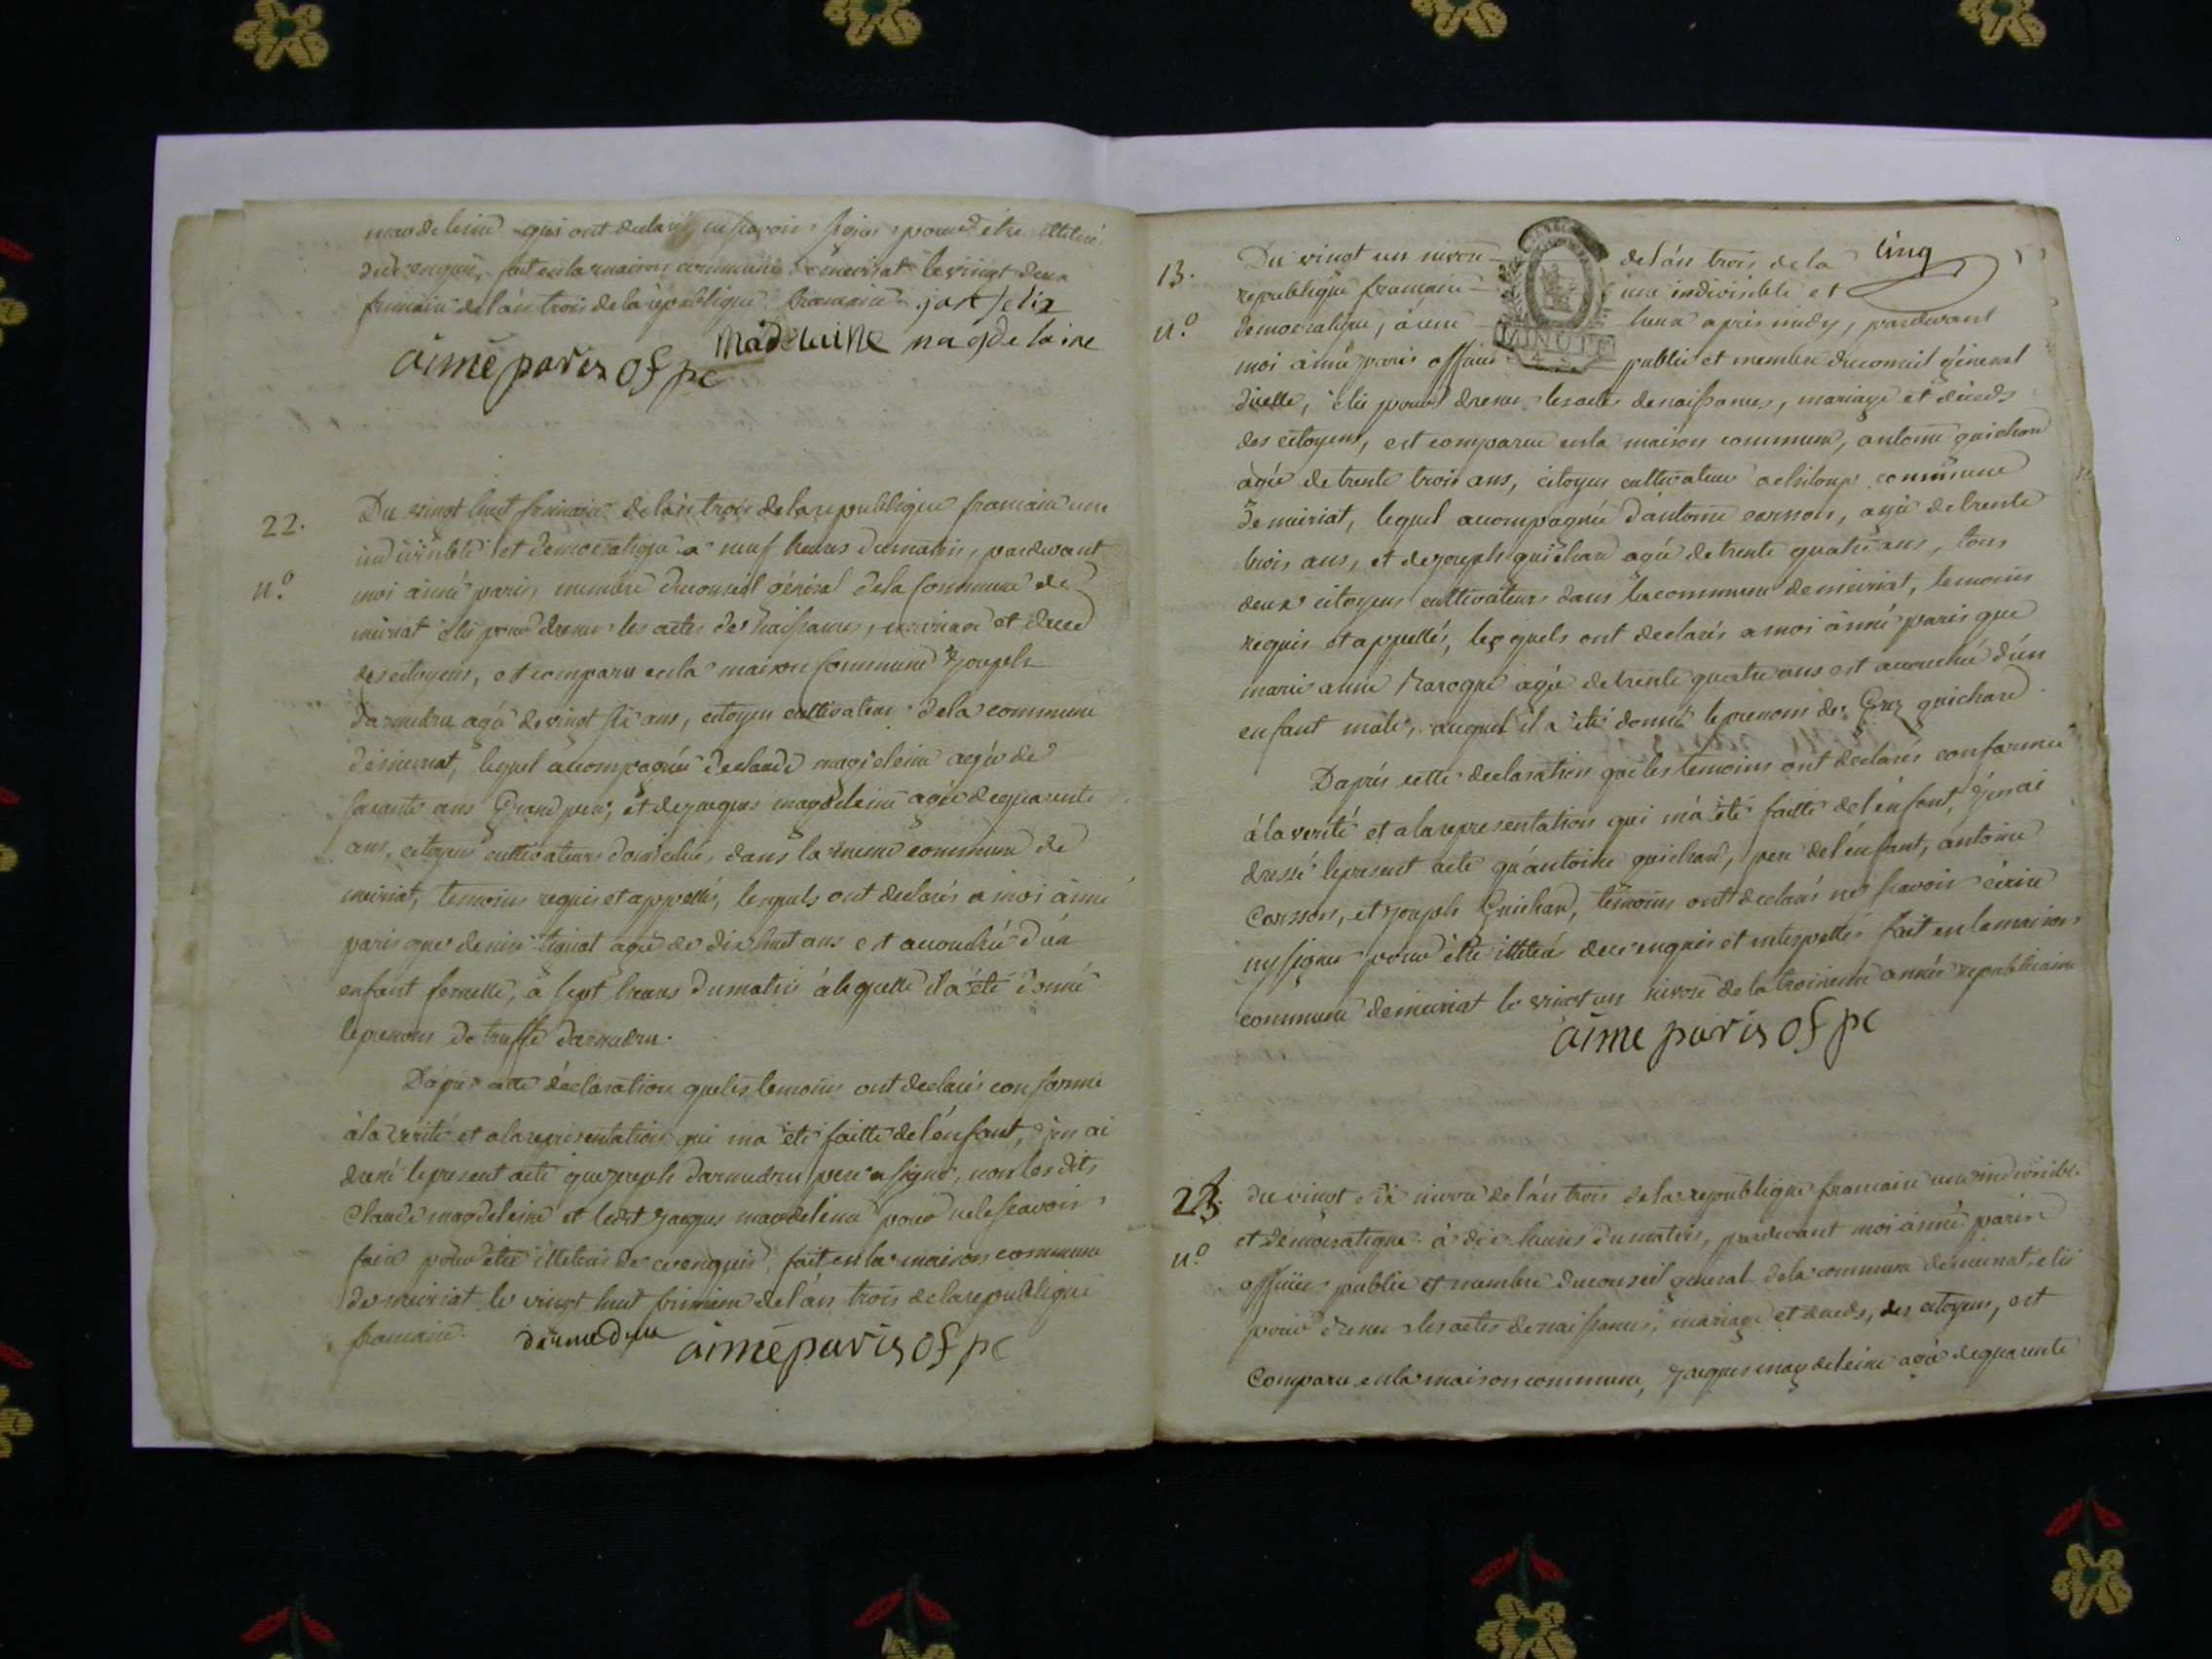 magdeleine qui ont declaré ne scavoir signer pour être illiteré
de ce enquis, fait en la maison commune de meiriat le vingt deux
frimaire de l'an trois de la republique francaise
Madelaine nagde laine
aimé paris of pc
22.
Du vingt huit frimaire de l'an trois de la republique francaise une
indivisible et democratique a neuf heures du matin, pardevant
n.º
moi aimé paris, membre du conseil général de la Commune de
meiriat élu pour dresser les actes de naissances, mariage et deced
des citoyens, est comparu en la maison Commune Joseph
Darmedru agé de vingt six ans, citoyen cultivateur de la commune
de meiriat, lequel accompagnée de claude magdeleine agée de
ans Grand pere, et de jacques magdeleine agée de quarante
ans, citoyens cultivateurs domiciliés, dans la meme commune de
meiriat, temoins requis et appellés, lesquels ont declarés a moi aimé
paris que agée de dix huit ans est accouchée d'un
enfant femelle, à sept heures du matin à lequelle il a été donné
le prenom de Darmedru.
D'après cette déclaration que les temoins ont declarés conforme
à la verité et a la representation qui m'a été faitte de l'énfant, j'en ai
dressé le present acte que joseph Darmedru pere a signé, non les dits
Claude magdeleine et ledit Jacques magdeleine pour ne le scavoir
faire pour être illiterés de ce enquis, fait en la maison commune
de meiriat le vingt huit frimaire de l'an trois de la republique
francaise.
darmedru aimé paris of pc
13.
Du vingt un nivose de l'án trois de la cinq
republique francaise une indivisible et
n.º
democratique, à une heure après midy, pardevant
MINUTE
moi aimé paris officier public et membre du conseil géneral
d'icelle, élu pour dresser les actes de naissances, mariage et déceds
des citoyens, est comparu en la maison commune, antoine guichard
agée de trente trois ans, citoyen cultivateur a chiloup commune
de meiriat, lequel accompagnée d'antoine carsson, agée de trente
trois ans, et de joseph guichard agée de trente quatre ans, tous
deux citoyens cultivateurs dans la commune de meiriat, temoins
requis et appellés, lesquels ont declarés a moi aimé paris que
marie anne agée de trente quatre ans est accouchée d'un
enfant mâle, auquel il a été donné le prenom de guichard
Daprés cette declaration que les temoins ont déclarés conforme
à la verité et a la representation qui m'a été faitte de l'énfant, j'en ai
dressé le present acte qu'antoine guichard, pere de l'énfant, antoine
Carsson, et joseph Guichard, témoins ont declarés ne scavoir écrire
ny signer pour être illiteré de ce enquis et interpellés fait en la maison
commune de meiriat le vingt un nivose de la troisieme année republicaine
aimé paris of pc
23.
du vingt nivose de l'án trois de la republique francaise une indivisible
et democratique à dix heures du matin, pardevant moi aimé paris
n.º
officier public et membre du conseil general de la commune de meiriat elu
pour dresser les actes de naissances, mariage et deceds, des citoyens, est
Comparu en la maison commune, jacques magdeleine agée de quarante